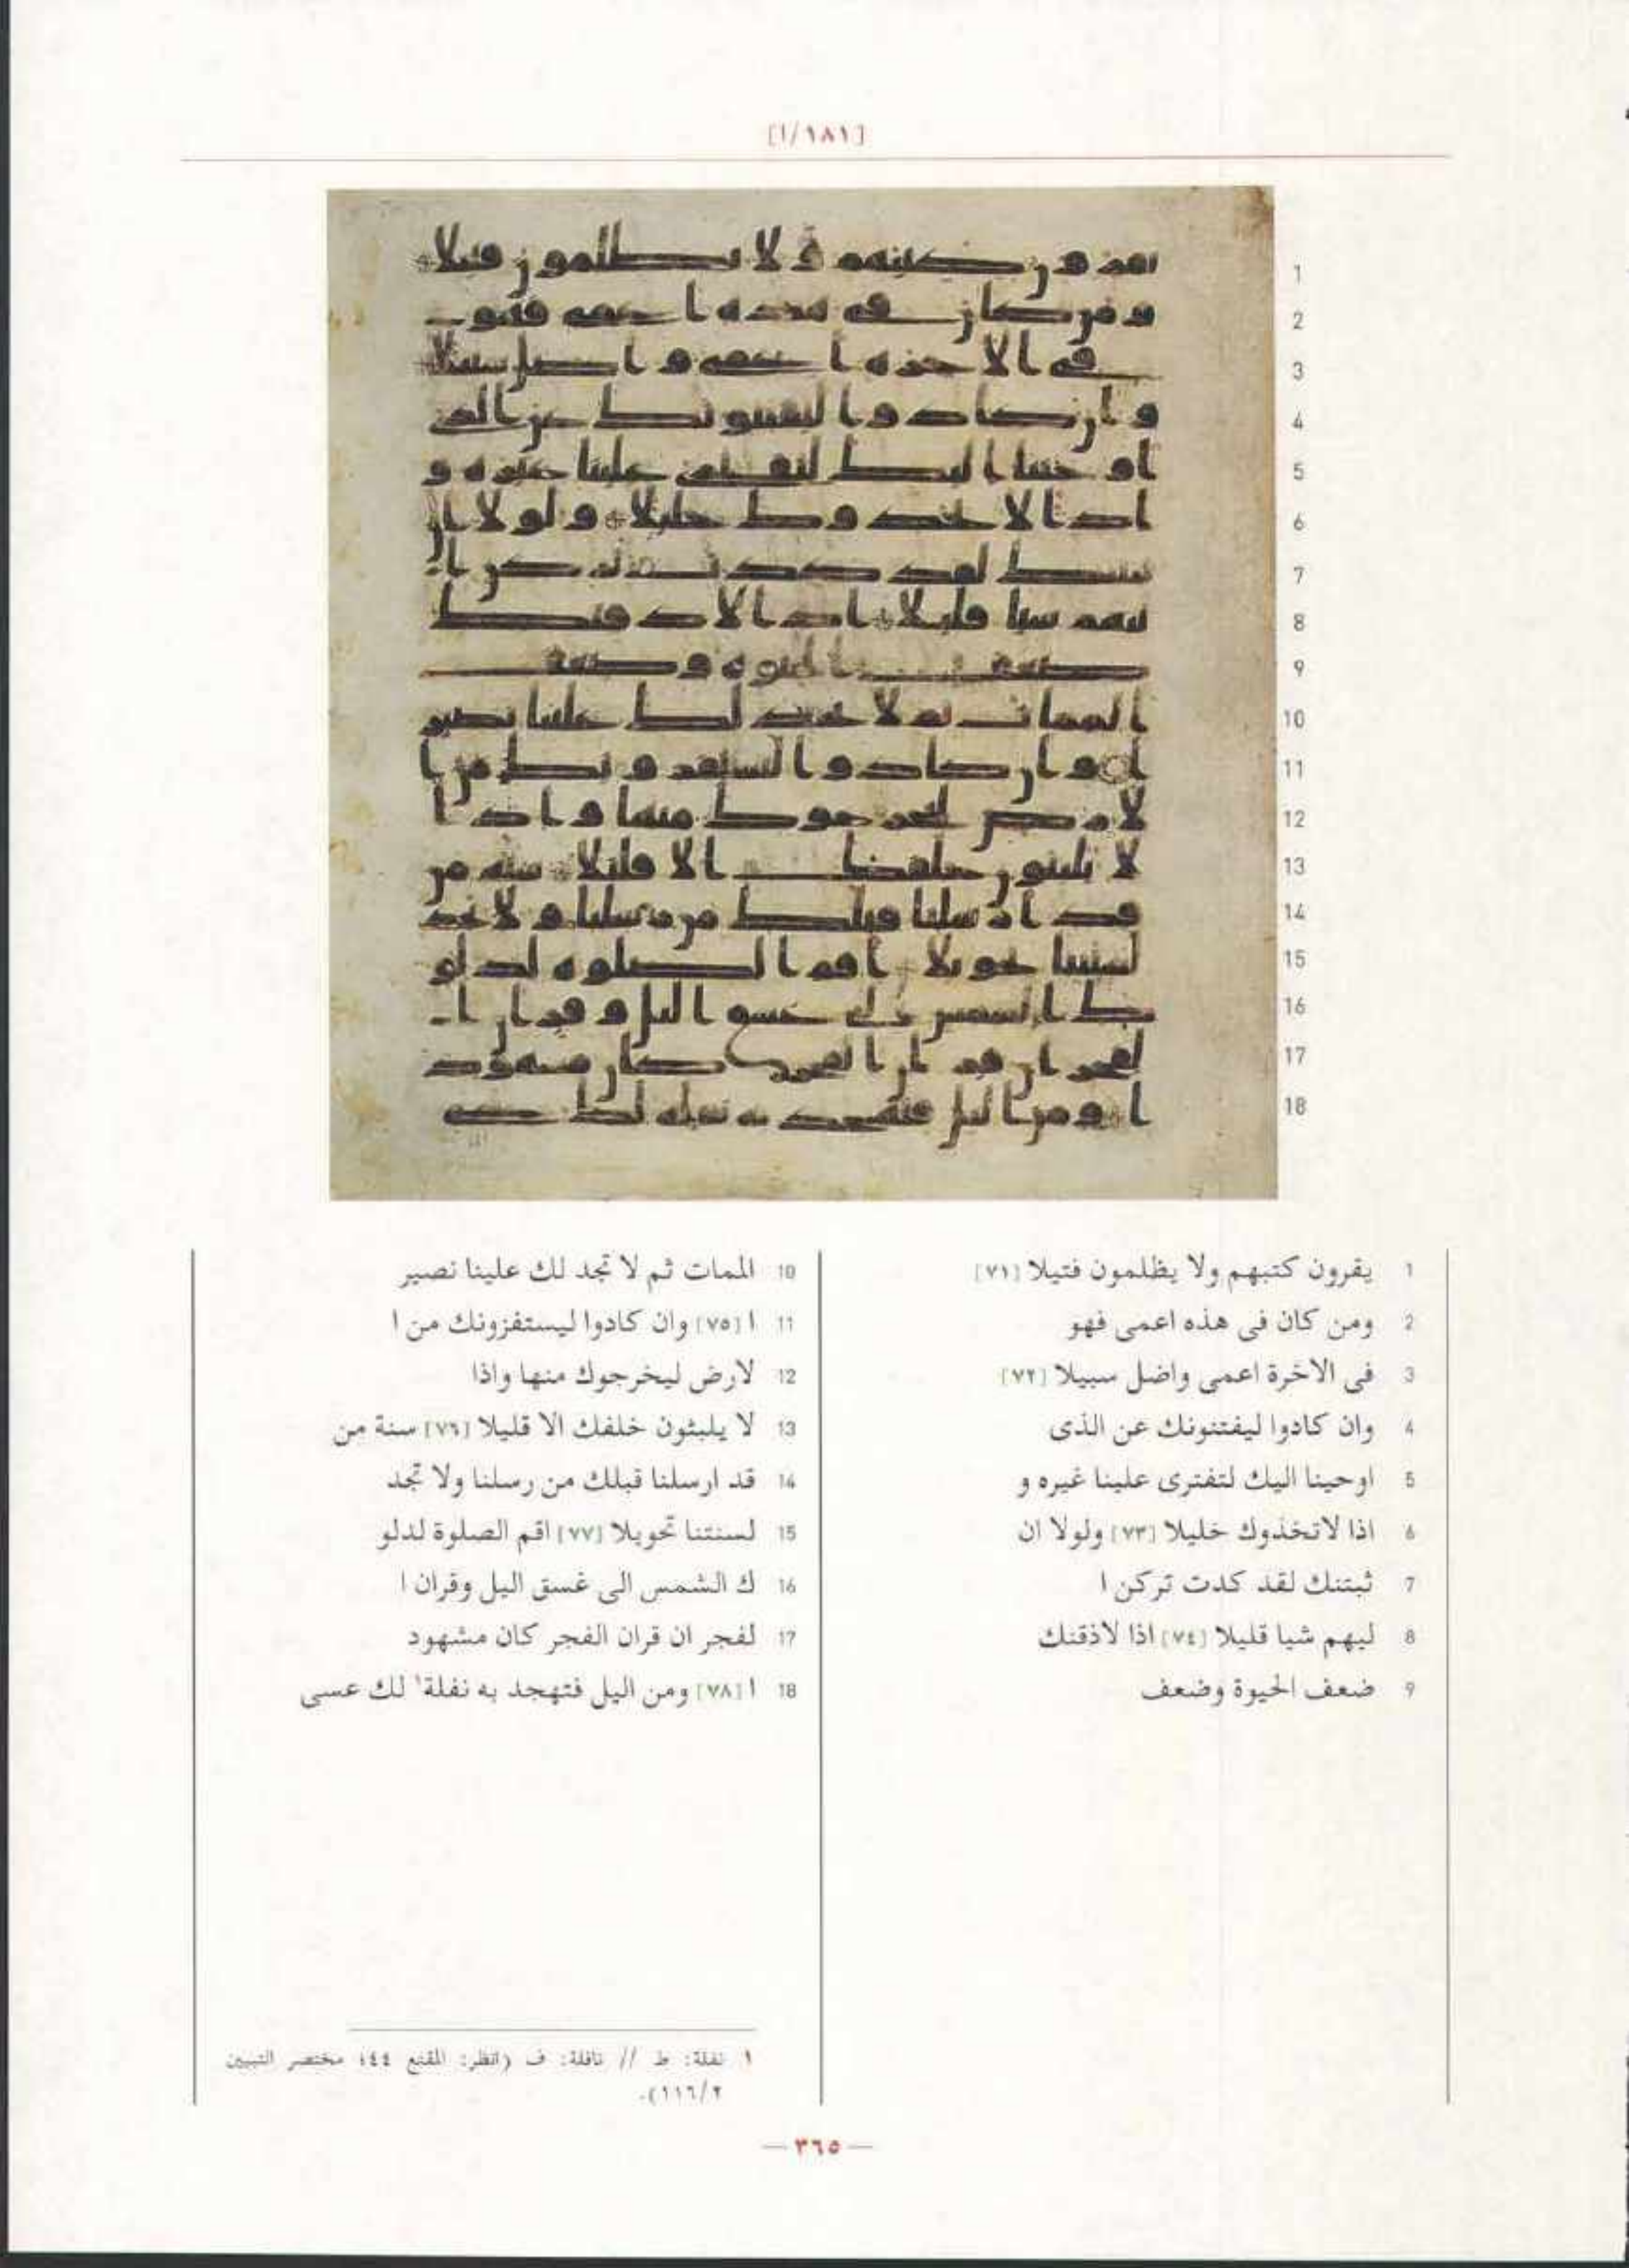 [١٨١/ا]
1
2
3
4
5
6
7
8
9
10
11
12
13
14
15
16
17
18
1 يقرون كتبهم ولا يظلمون فتيلا [٧١]
2 ومن كان فى هذه اعمى فهو
3 فى الاخرة اعمى واضل سبيلا [٧٢]
4 وان كادوا ليفتنونك عن الذى
5 اوحينا اليك لتفترى علينا غيره و
6 اذا لاتخذوك خليلا [٧٣] ولولا ان
7 ثبتنك لقد كدت تركن ا
8 ليهم شيا قليلا [٧٤] اذا لاذقنك
9 ضعف الحيوة وضعف
10 الممات ثم لا تجد لك علينا نصير
11 ا [٧٥] وان كادوا ليستفزونك من ا
12 لارض ليخرجوك منها واذا
13 لا يلبثون خلفك الا قليلا [٧٦] سنة من
14 قد ارسلنا قبلك من رسلنا ولا تجد
15 لسنتنا تحويلا [٧٧] اقم الصلوة لدلو
16 ك الشمس الى غسق اليل وقران ا
17 لفجر ان قران الفجر كان مشهود
18 ا [٧٨] ومن اليل فتهجد به نفلة١ لك عسى
١ نفلة: ط // نافلة: ف (انظر: المقنع ٤٤؛ مختصر التبيين
٢/١١٦).
— ٣٦٥ —